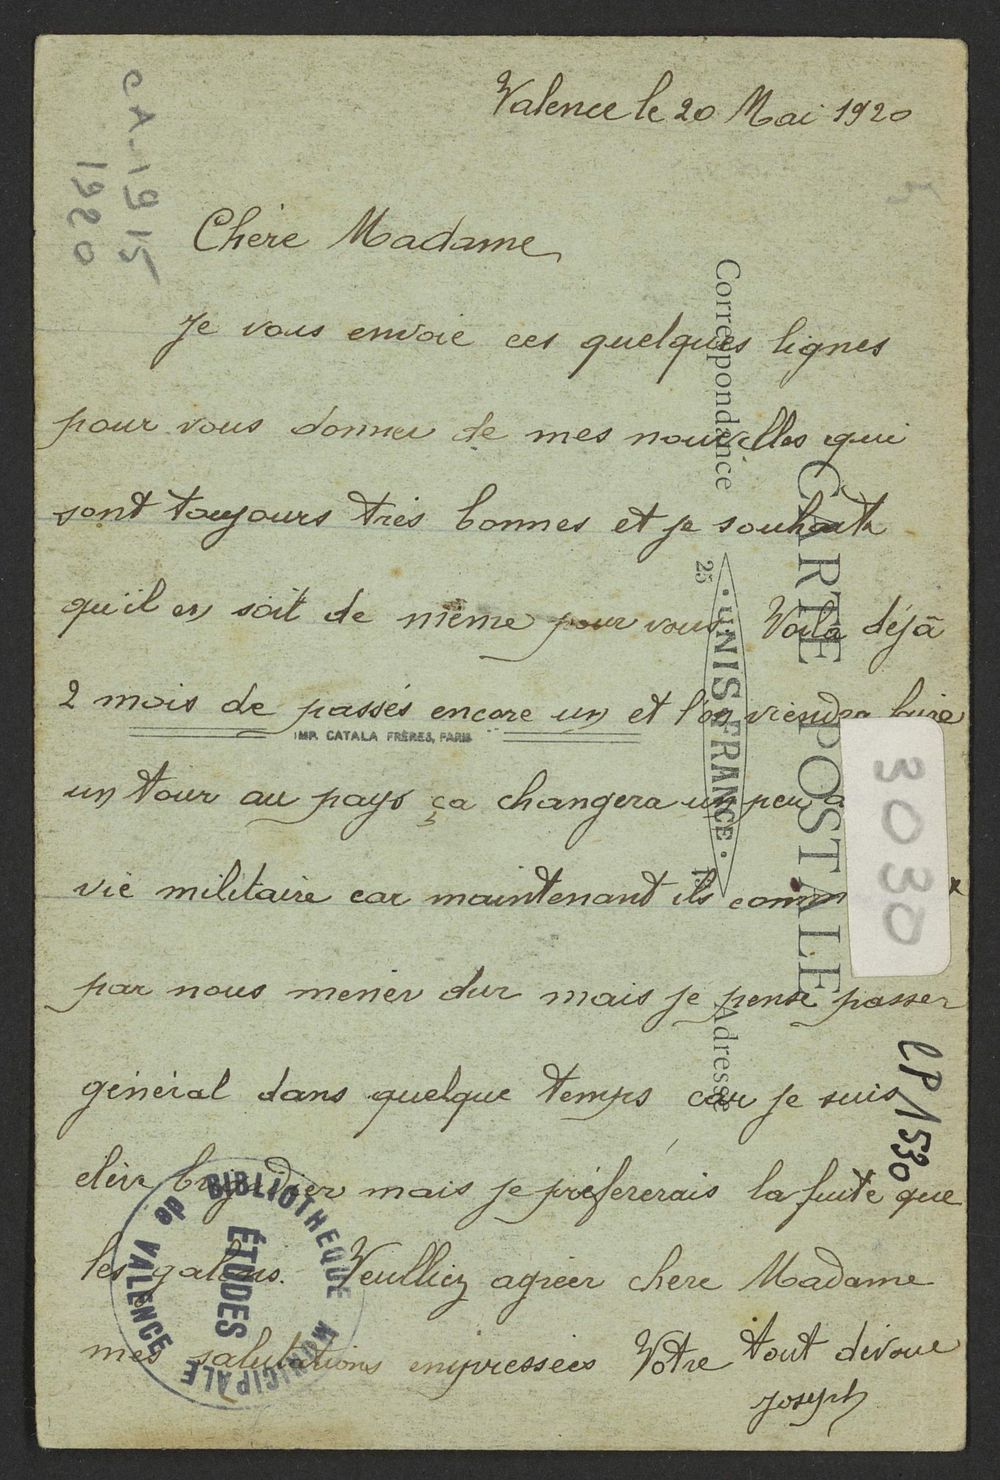 Valence le 20 Mai 1920
Chère Madame
Je vous envoie ces quelques lignes
pour vous donner de mes nouvelles qui
sont toujours très bonnes et je souhaite
qu'il en soit de même pour vous. Voila déjà
2 mois de passés encore un et l'on viendra faire
un tour au pays ça changera un peu
vie militaire car maintenant ils
par nous mener dur mais je pense passer
général dans quelque temps car je suis
brigadier mais je préfèrerais la fuite que
les galons. Veulliez agreer chere Madame
mes salutations empressées Votre tout dévoué
Joseph
CARTE POSTALE
Correspondance
Adresse
25 · UNIS FRANCE ·
IMP. CATALA FRÈRES, PARIS
BIBLIOTHEQUE MUNICIPALE
de VALENCE
ÉTUDES
CA-1915
1920
3030
CP1530